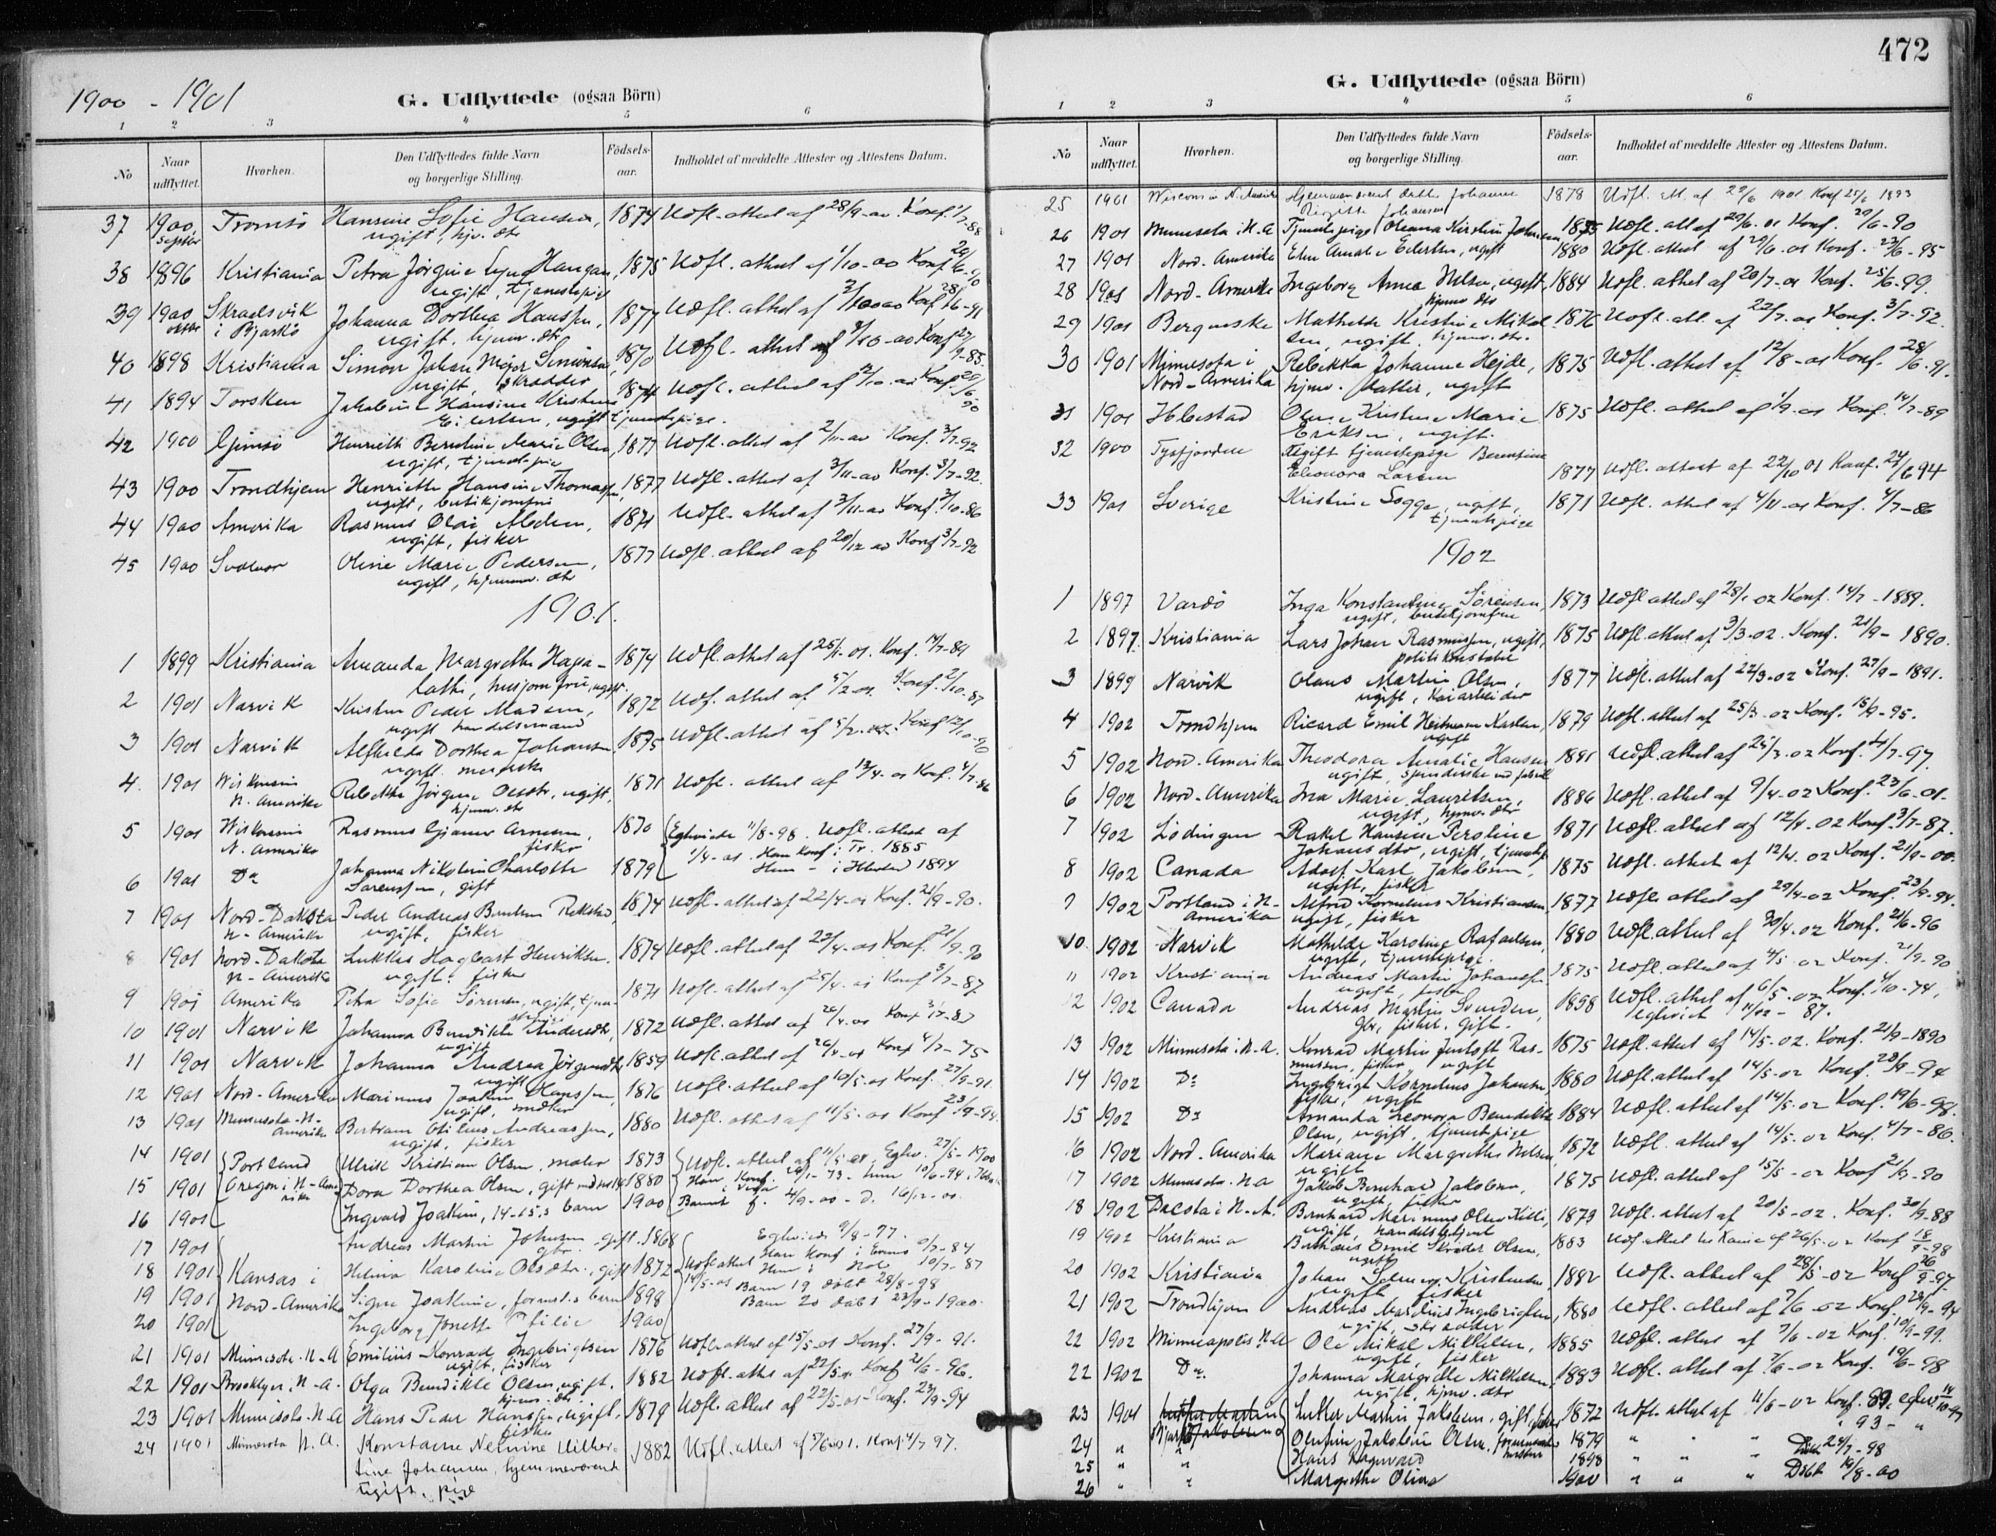 1900 - 1901
G. Udflyttede (ogsaa Börn)
1 2 3 4 5 6
No
Naar udflyttet.
Hvorhen.
Den Udflyttedes fulde Navn og borgerlige Stilling.
Födsels-aar.
Indholdet af meddelte Attester og Attestens Datum.
37 1900 Tromsö Hansine Sofie Hansen, 1874 Udfl. attest af 28/9-00 Konf. 1/7-88
septbr ugift, hjv. dtr
38 1896 Kristiania Petra Jörgine Haugan, 1875 Udfl. attest af 1/10-00 Konf.
ugift, tjenestepige
39 1900 Skraelsvik Johanna Dorthea Hanssen, 1877 Udfl. attest af Konf.
oktbr i Bjarkö ugift, hjemv. dtr.
40 1898 Kristiania Simon Johan Mejer Simonsen 1870 Udfl. attest af Konf.
ugift, skrædder
41 1894 Torsken Jakobine Hansine Kristine 1874 Udfl. attest af Konf.
Eilertsen, ugift tjenestepige.
42 1900 Gimsö Henriette Berntine Marie Olsen, 1877 Udfl. attest af 2/11-00 Konf. 3/7-92
ugift, tjenestepige
43 1900 Trondhjem Henriette Hansine Thomassen, 1877 Udfl. attest af 3/11-00 Konf. 3/7-92.
ugift, butikjomfru
44 1900 Amerika Rasmus Olai Madsen, 1871 Udfl. attest af 3/11-00 Konf. 3/10-86
ugift, fisker
45 1900 Svolvær Oline Marie Pedersen, 1877 Udfl. attest af 20/12-00 Konf. 3/7-92
ugift, hjemmev. dtr
1901.
1 1899 Kristiania Amanda Margrethe 1874 Udfl. attest af 25/1-01. Konf. 14/7-89
husjomfru, ugift.
2 1901 Narvik Kristen Peder Madsen, 1872 Udfl. attest af 5/2-01. Konf. 2/10-87
ugift handelsmand
3 1901 Narvik Alfhilda Dorthea Johansen 1875 Udfl. attest af 5/2-01. Konf. 12/10-90
ugift.
4. 1901 Wiskonsin Rebekka Jörgine Olsdtr, ugift, 1871 Udfl. attest af 13/4-01 Konf. 4/7-86
N. Amerika hjemv. dtr
5 1901 Wiskonsin Rasmus Gjæver Arnesen, 1870 Egtviede 11/8-98. Udfl. attest af
N. Amerika fisker 1/4-01. Han Konf. i Tr. 1885
6 1901 Do Johanna Nikoline Charlotte 1879 Hun - i Ibestad 1894
Sørenssen, gift
7 1901 Nord-Dakota Peder Andreas Berntsen Rekstad, 1874 Udfl. attest af 22/4-01 Konf. 21/9-90.
N-Amerika ugift, fisker
8 1901 Nord-Dakota Hagbart Henriksen. 1874 Udfl. attest af 23/4-01 Konf. 21/9-90
N-Amerika ugift. fisker
9 1901 Amerika Petra Sofie Sörensen, ugift, tjene- 1871 Udfl. attest af 25/4-01 Konf. 3/7-87.
stepige
10 1901 Narvik Johanna Bendikte Andersdtr, 1872 Udfl. attest af 26/4-01 Konf. 3/7-87
ugift
11 1901 Narvik Johanna Andrea Jörgensdtr 1859 Udfl. attest af 26/4-01 Konf. 4/7-75
ugift
12 1901 Nord-Amerika Marinus Joakim Hanssen, 1876 Udfl. attest af 10/5-01 Konf. 27/9-91.
ugift,
13 1901 Minnesota-N- Bertram Otilius Andreassen, 1880 Udfl. attest af 11/5-01 Konf. 23/9-94.
Amerika ugift, fisker
14 1901 Portland Ulrik Kristian Olsen, maler 1873 Udfl. attest af 11/5-01, Egtv. 27/5-1900
15 1901 Oregon i N-Ame- Dora Dorthea Olsen, gift med no 14 1880 Han Konf. hun 10/6-94.
rika
16 1901 Ingvard Joakim, 14-15,s barn 1900 Barnet f. 4/9-00 - d. 16/12-00.
17 1901 Andreas Martin Johnsen gift. 1868 Egtviede 9/8-97.
gbr.
18 1901 Kansas i Helmina Karoline Olsdtr., gift 1872 Udfl. attest Han Konf. i 9/7-84
Hun i 10/7-87
19 1901 Nord-Amerika Signe Joakimine, barn 1898 14/5-01 Barn 19 döbt 28/8-98
20 1901 Ingeborg Jonette Otilie 1900 Barn 20 döbt 23/9-1900.
21 1901 Minnesota. N-A Emilius Konrad Ingebrigtsen 1876 Udfl. attest af 15/5-01 Konf. 27/9-91.
ugift, fisker
22 1901 Brooklyn, N-A. Olga Bendikte Olsen, ugift. 1882 Udfl. atts af 22/5-01 Konf. 21/6-96.
hjemv. dtr.
23 1901 Minnisota. N.A Hans Peder Hanssen, ugift, 1879 Udfl. attest af 22/5-01 Konf. 23/9-94
fisker
24 1901 Minnesota N.A. Konstanse Nelvine Vilhel- 1882 Udfl. attest af 7/6 1901. Konf. 4/7 97.
mine Johansen, hjemmeværende
ugift, pige
472
G. Udflyttede (ogsaa Börn)
1 2 3 4 5 6
No
Naar udflyttet.
Hvorhen.
Den Udflyttedes fulde Navn og borgerlige Stilling.
Födsels-aar.
Indholdet af meddelte Attester og Attestens Datum.
25 1901 Wisconsin N. Amerika Hjemmeværende datter Johanne 1878 Udfl. att. af 29/6 1901 Konf. 25/6 1893
Johansen
26 1901 Minnesota i N.A Tjenestepige Oleanna Kirstine Johnsen 1875 Udfl. att. af 29/6-01 Konf. 29/6-90
27 1901 Nord-Amerika Elen Amalie Eilertsen, ugift 1880 Udfl. attest af 29/6-01 Konf. 23/6-95
28 1901 Nord-Amerika Ingeborg Anna Nilsen, ugift, 1884 Udfl. attest af 20/7-01 Konf. 25/6-99.
hjemv dtr
29 1901 Mathilde Kristine Mikal- 1876 Udfl. att. af 22/7-01 Konf. 3/7-92.
sen, ugift. hjemv. dtr.
30 1901 Minnesota i Rebekka Johanne Hejde, 1875 Udfl. attest af 12/8-01 Konf. 28/6-91.
Nord-Amerika hjmv. datter, ugift
31 1901 Ibestad Oline Kristine Marie 1875 Udfl. attest af 1/9-01 Konf. 14/7-89
Eriksen, ugift.
32 1900 Tysfjorden Ugift tjenestepige Berentine
Eleonora Larsen 1877 Udfl. attest af 22/10 01 Konf. 24/6 94
33 1901 Sverige Kristine Sogge, ugift, 1871 Udfl. attest af 4/11-01 Konf. 4/7-86
tjenestepige
1902
1 1897 Vardö Inga Konstantine Sörensen, 1873 Udfl. attest af 28/1-02 Konf. 14/7-1889.
ugift, butikjomfru
2 1897. Kristiania Lars Johan Rasmussen, ugift, 1875 Udfl. attest af 3/3-02. Konf. 21/9-1890.
politikonstabel
3 1899 Narvik Olaus Martin Olsen, 1877 Udfl. attest af 22/3-02 Konf. 27/9-1891.
ugift, kaiarbeider
4 1902 Trondhjem Ricard Emil Heitmann Karlsen, 1879 Udfl. attest af 25/3-02 Konf. 15/9-95.
ugift
5 1902 Nord-Amerika Theodora Amalie Hansen 1881 Udfl. attest af 25/3-02 Konf. 4/7-97.
ugift, spinderske ved fabrik
6 1902 Nord-Amerika Ina Marie Lauritsen, 1886 Udfl. attest af 9/4-02 Konf. 23/6-01.
ugift, hjemv. dtr
7 1902 Lödingen Rakel Hansine Peroline 1871 Udfl. attest af 12/4-02 Konf. 3/7-87.
Johansdtr, ugift, tjenestep.
8 1902 Canada Adolf Karl Jakobsen, 1875 Udfl. attest af 12/4. 02 Konf. 21/9-90.
ugift, fisker
9 1902 Portland i N- Alfred Kornelius Kristiansen, 1877 Udfl. attest af 29/4-02 Konf. 23/9-94.
Amerika ugift, fisker
10. 1902 Narvik Mathilde Karoline Rafaelsen, 1880 Udfl. attest af 30/4-02 Konf. 21/6-96
ugift, tjenestepige.
11 1902 Kristiania Andreas Martin Johansen 1875 Udfl. attest af 4/5-02 Konf. 21/9-90
ugift, fisker
12 1902 Canada Andreas Martin Svendsen, 1858 Udfl. attest af 6/5-02 Konf. 4/10-74,
gbr, fisker, gift. egtviet
13 1902 Minnesota i N.A. Konrad Martin Ras- 1875 Udfl. attest af 14/5-02. Konf. 21/9-1890
mussen, fisker ugift
14 1902 Do Ingebrigt Kornelius Johansen 1880 Udfl. attest af 14/5-02 Konf. 23/9-94
fisker, ugift
15 1902 Do Amanda Leonora Benedikte 1884 Udfl. attest af 14/5-02 Konf. 19/6-98.
Olsen, ugift, tjenestepige
16 1902 Nord-Amerika Mariane Margrethe Nilsen, 1872 Udfl. attest af 14/5-02 Konf. 4/7-86.
ugift
17 1902 Minnesota. N.A Jakob Bernhard Jakobsen, 1875 Udfl. attest af 15/5-02 Konf 21/9-90
ugift, fisker
18 1902 Dacota i N.A. Bernhard Marinius Olsen 1873 Udfl. attest af 20/5-02. Konf. 30/9-88
ugift, handelsbetjent
19 1902 Kristiania Emil Olsen, 1883 Udfl. attest af 26/5-02 Konf 18/9-98
ugift
20 1902 Kristiania Johan Kristensen 1882 Udfl. attest af 28/5-02 Konf 26/9-97
ugift fisker
21 1902 Trondhjem Andreas Marelius Ingebrigtsen, 1880 Udfl. attest af 7/6-02 Konf. 23/9-94
ugift, skrædder
22 1902 Minneapolis N.A Ole Mikal Mikkelsen, 1885 Udfl. attest af 7/6-02 Konf. 10/9-99.
ugift, fisker
22 1902 Do. Johanna Margrethe Mikkelsen, 1883 Udfl. attest af 7/6-02 Konf. 19/6-98
ugift, hjmv. dtr
23 1901 Luther Martin Jakobsen, gift, 1872 Udfl. attest af 11/6-02 Konf. 89
24 " " Olufine Jakobine Olsen, 1879 " " " " 93 - "
25 " " Hans Dagvard 1898 " " " Döbt 24/7-98
26 " " Margrethe Olina 1900 " " " Döbt 19/8-00